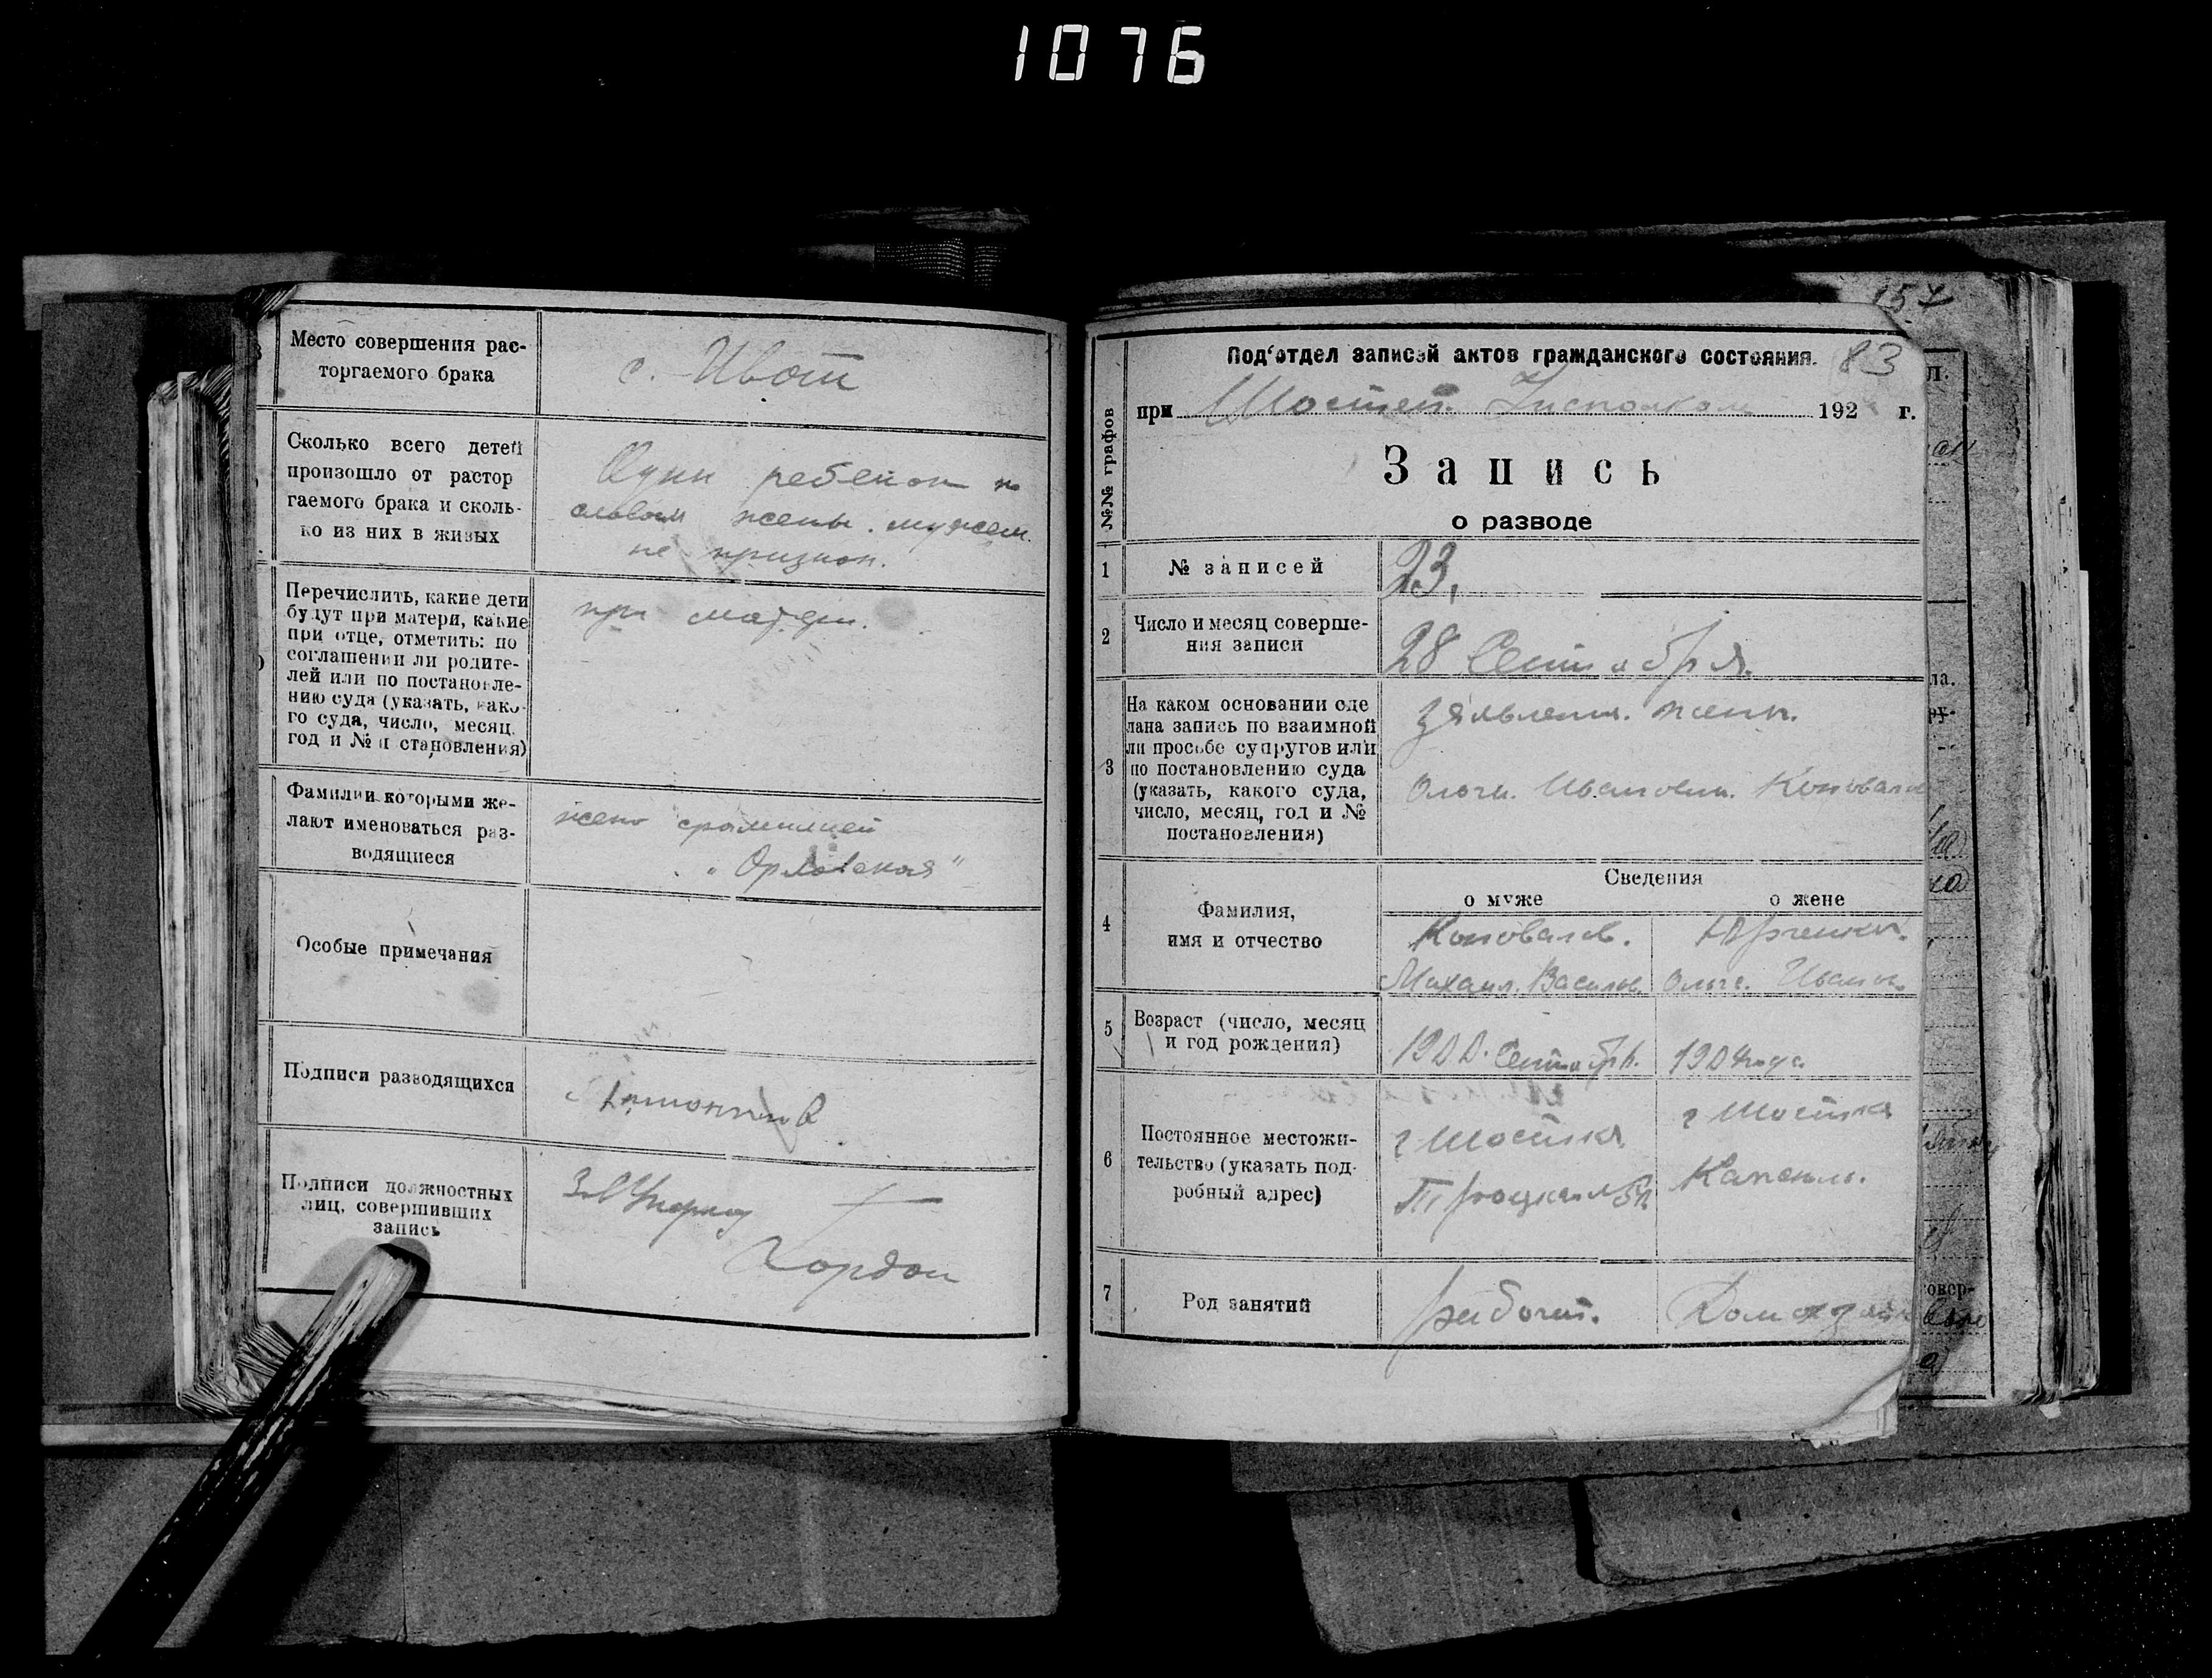 1076
Место совершения рас-
торгаемого брака
с. Ивот
Сколько всего детей
произошло от растор
гаемого брака и сколь-
ко из них в живых
Один ребенок по
словам жены. мужем
не признон.
Перечислить, какие дети
будут при матери, какие
при отце, отметить: по
соглашении ли родите-
лей или по постановле-
нию суда (указать, како-
го суда, число, месяц,
год и № п становления)
при матери.
Фамилии которыми же-
лают именоваться раз-
водящиеся
жена фамилией
"Орловская"
Особые примечания
Подписи разводящихся
Подписи должностных
лиц, совершивших
запись
Гордон
157
83
№№ графов
Под'отдел записей актов гражданского состояния.
при Шостен. Исполком 192 г.
Запись
о разводе
1 № записей 23.
2 Число и месяц соверше-
ния записи
28 Сентября.
3 На каком основании сде
лана запись по взаимной
ли просьбе супругов или
по постановлению суда
(указать, какого суда,
число, месяц, год и №
постановления)
Заявления. жены.
Ольги. Ивановн. Коновал
Сведения
о муже о жене
4 Фамилия,
имя и отчество
Коновалов. Юрченко.
Михаил. Василов. Ольга. Иванов.
5 Возраст (число, месяц
и год рождения)
1900. Сентябрь. 1904 года
6 Постоянное местожи-
тельство (указать под-
робный адрес)
г Шостка
г Шостка
7 Род занятий
рабочий. Домохозяйк